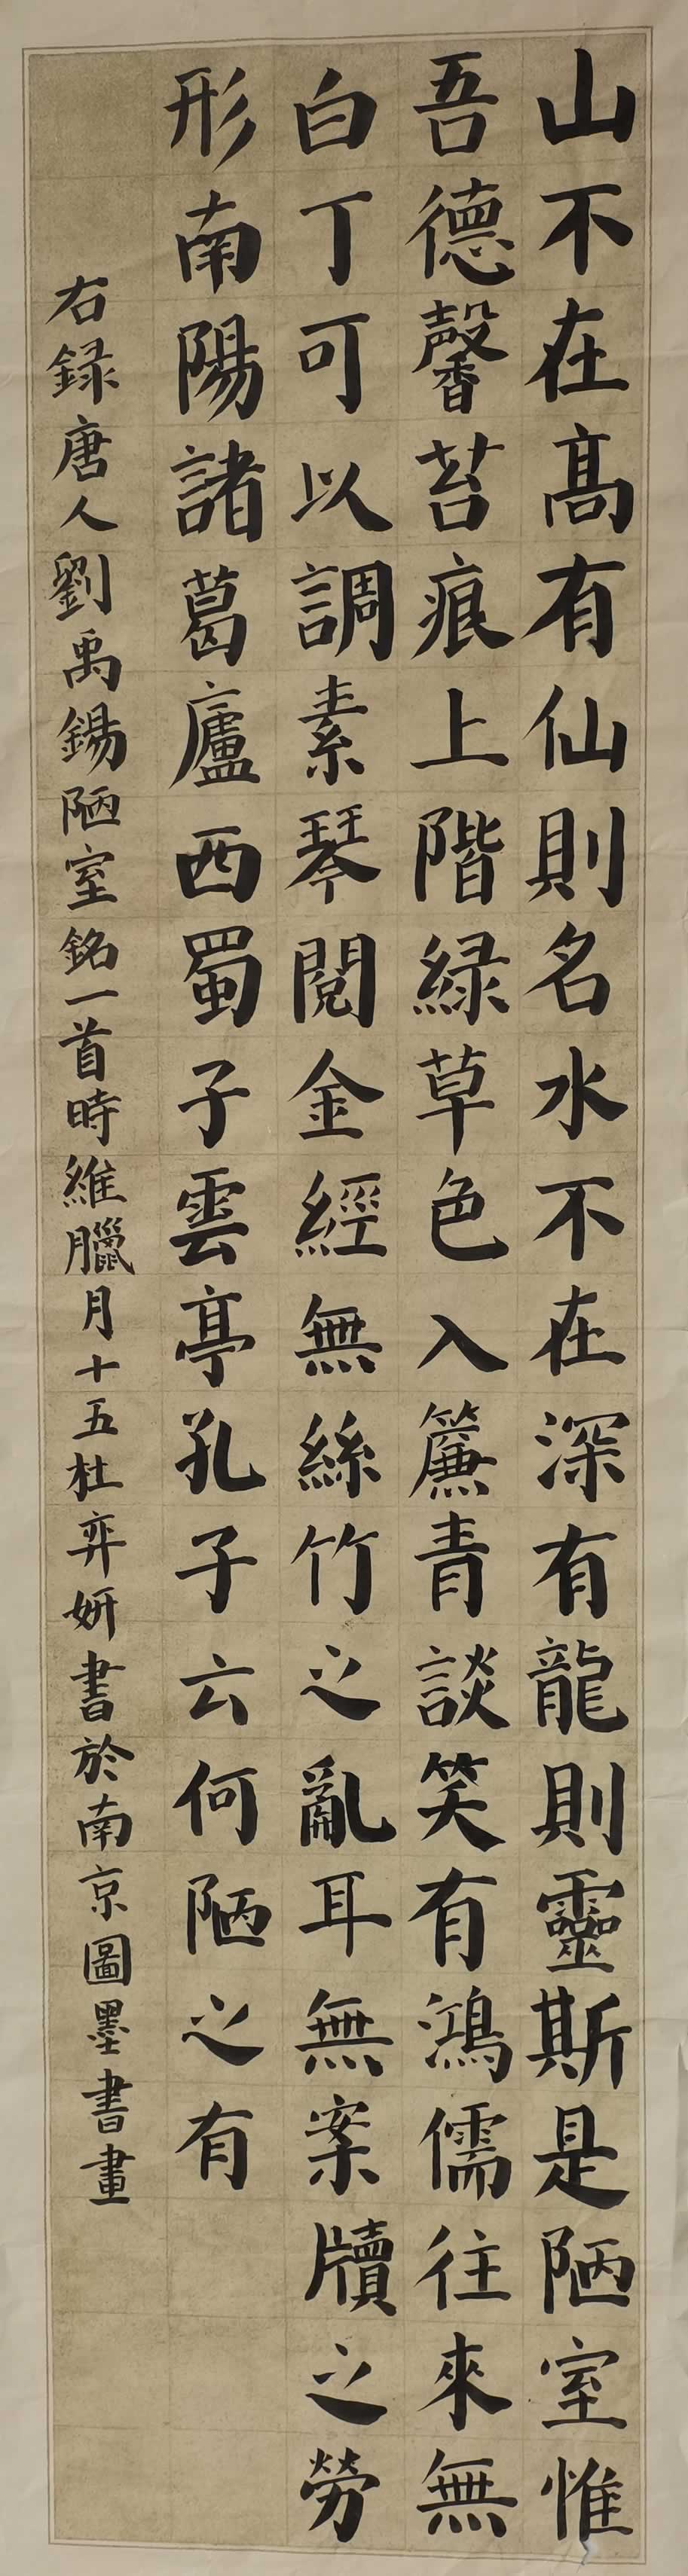 山不在高有仙則名水不在深有龍則靈斯是陋室惟
吾德馨苔痕上階緑草色入簾青談笑有鴻儒往來無
白丁可以調素琴閱金經無絲竹之亂耳無案牘之勞
形南陽諸葛廬西蜀子雲亭孔子云何陋之有
右録唐人劉禹錫陋室銘一首時維臘月十五杜弈妍書於南京圖墨書畫